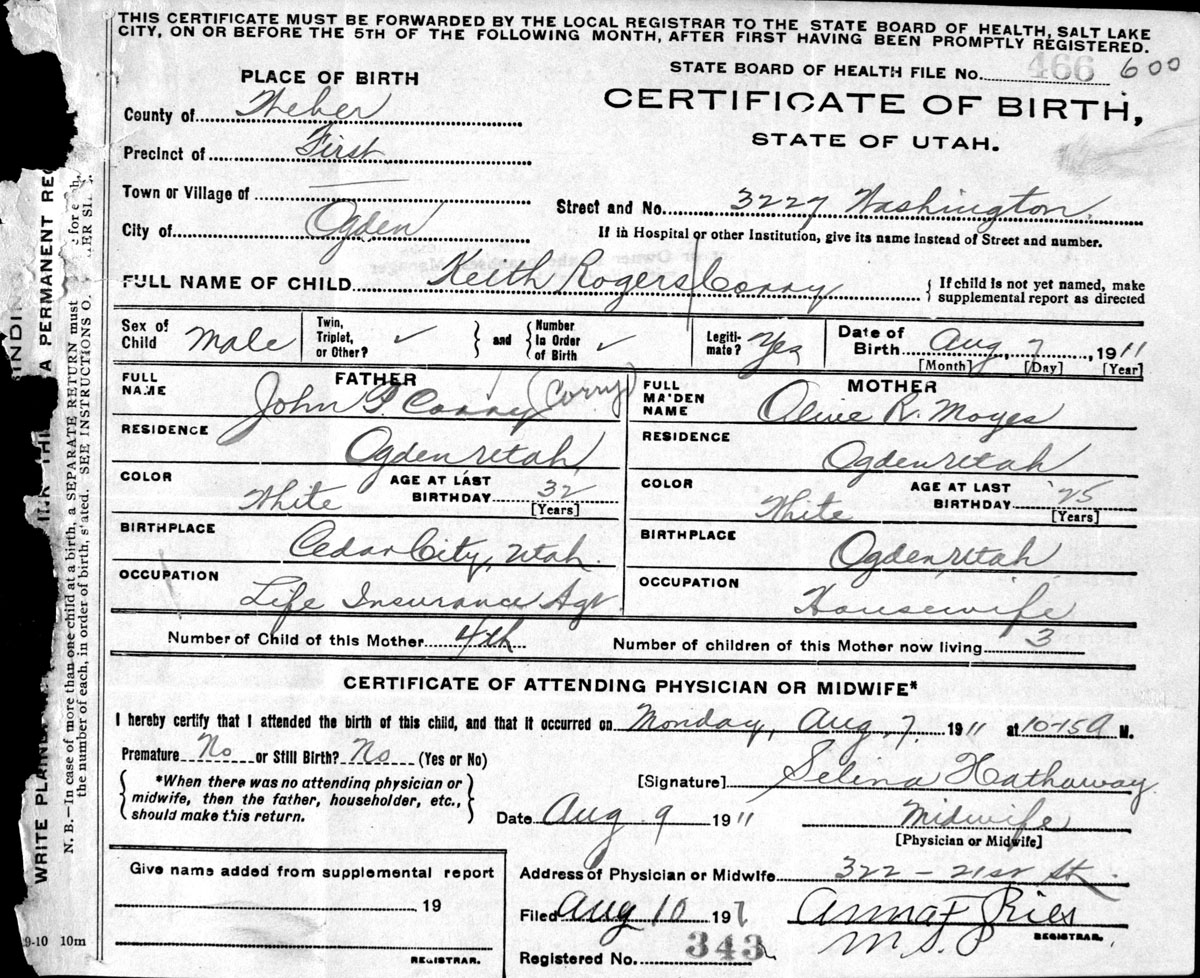 THIS CERTIFICATE MUST BE FORWARDED BY THE LOCAL REGISTRAR TO THE STATE BOARD OF HEALTH, SALT LAKE
CITY, ON OR BEFORE THE 5TH OF THE FOLLOWING MONTH, AFTER FIRST HAVING BEEN PROMPTLY REGISTERED.
STATE BOARD OF HEALTH FILE No. 466 600
PLACE OF BIRTH
CERTIFICATE OF BIRTH,
STATE OF UTAH.
County of Weber
Precinct of First
Town or Village of
City of Ogden
Street and No. 3227 Washington
If in Hospital or other Institution, give its name instead of Street and number.
FULL NAME OF CHILD Keith Rogers Corry
If child is not yet named, make
supplemental report as directed
Sex of Child Male
Twin, Triplet, or Other? ✓
and
Number In Order of Birth ✓
Legiti-mate? Yes
Date of Birth Aug 7, 1911
[Month] [Day] [Year]
FATHER
FULL NAME John P. Corry (Corry)
RESIDENCE Ogden Utah
COLOR White
AGE AT LAST BIRTHDAY 32
[Years]
BIRTHPLACE Cedar City, Utah
OCCUPATION Life Insurance Agt
MOTHER
FULL MAIDEN NAME Olive R. Moyes
RESIDENCE Ogden Utah
COLOR White
AGE AT LAST BIRTHDAY 25
[Years]
BIRTHPLACE Ogden, Utah
OCCUPATION Housewife
Number of Child of this Mother 4th
Number of children of this Mother now living 3
CERTIFICATE OF ATTENDING PHYSICIAN OR MIDWIFE*
I hereby certify that I attended the birth of this child, and that it occurred on Monday, Aug, 7. 1911 at 10-15 A M.
Premature No or Still Birth? No (Yes or No)
*When there was no attending physician or
midwife, then the father, householder, etc.,
should make this return.
[Signature] Selena Hathaway
Date Aug 9 1911
Midwife
[Physician or Midwife]
Give name added from supplemental report
19
REGISTRAR.
Address of Physician or Midwife 322 - 21st St.
Filed Aug 10 191
Anna F Ries
REGISTRAR.
Registered No. 343
9-10 10m
WRITE PLAIN
A PERMANENT REC
N. B.—In case of more than one child at a birth, a SEPARATE RETURN must
the number of each, in order of birth, stated. SEE INSTRUCTIONS O